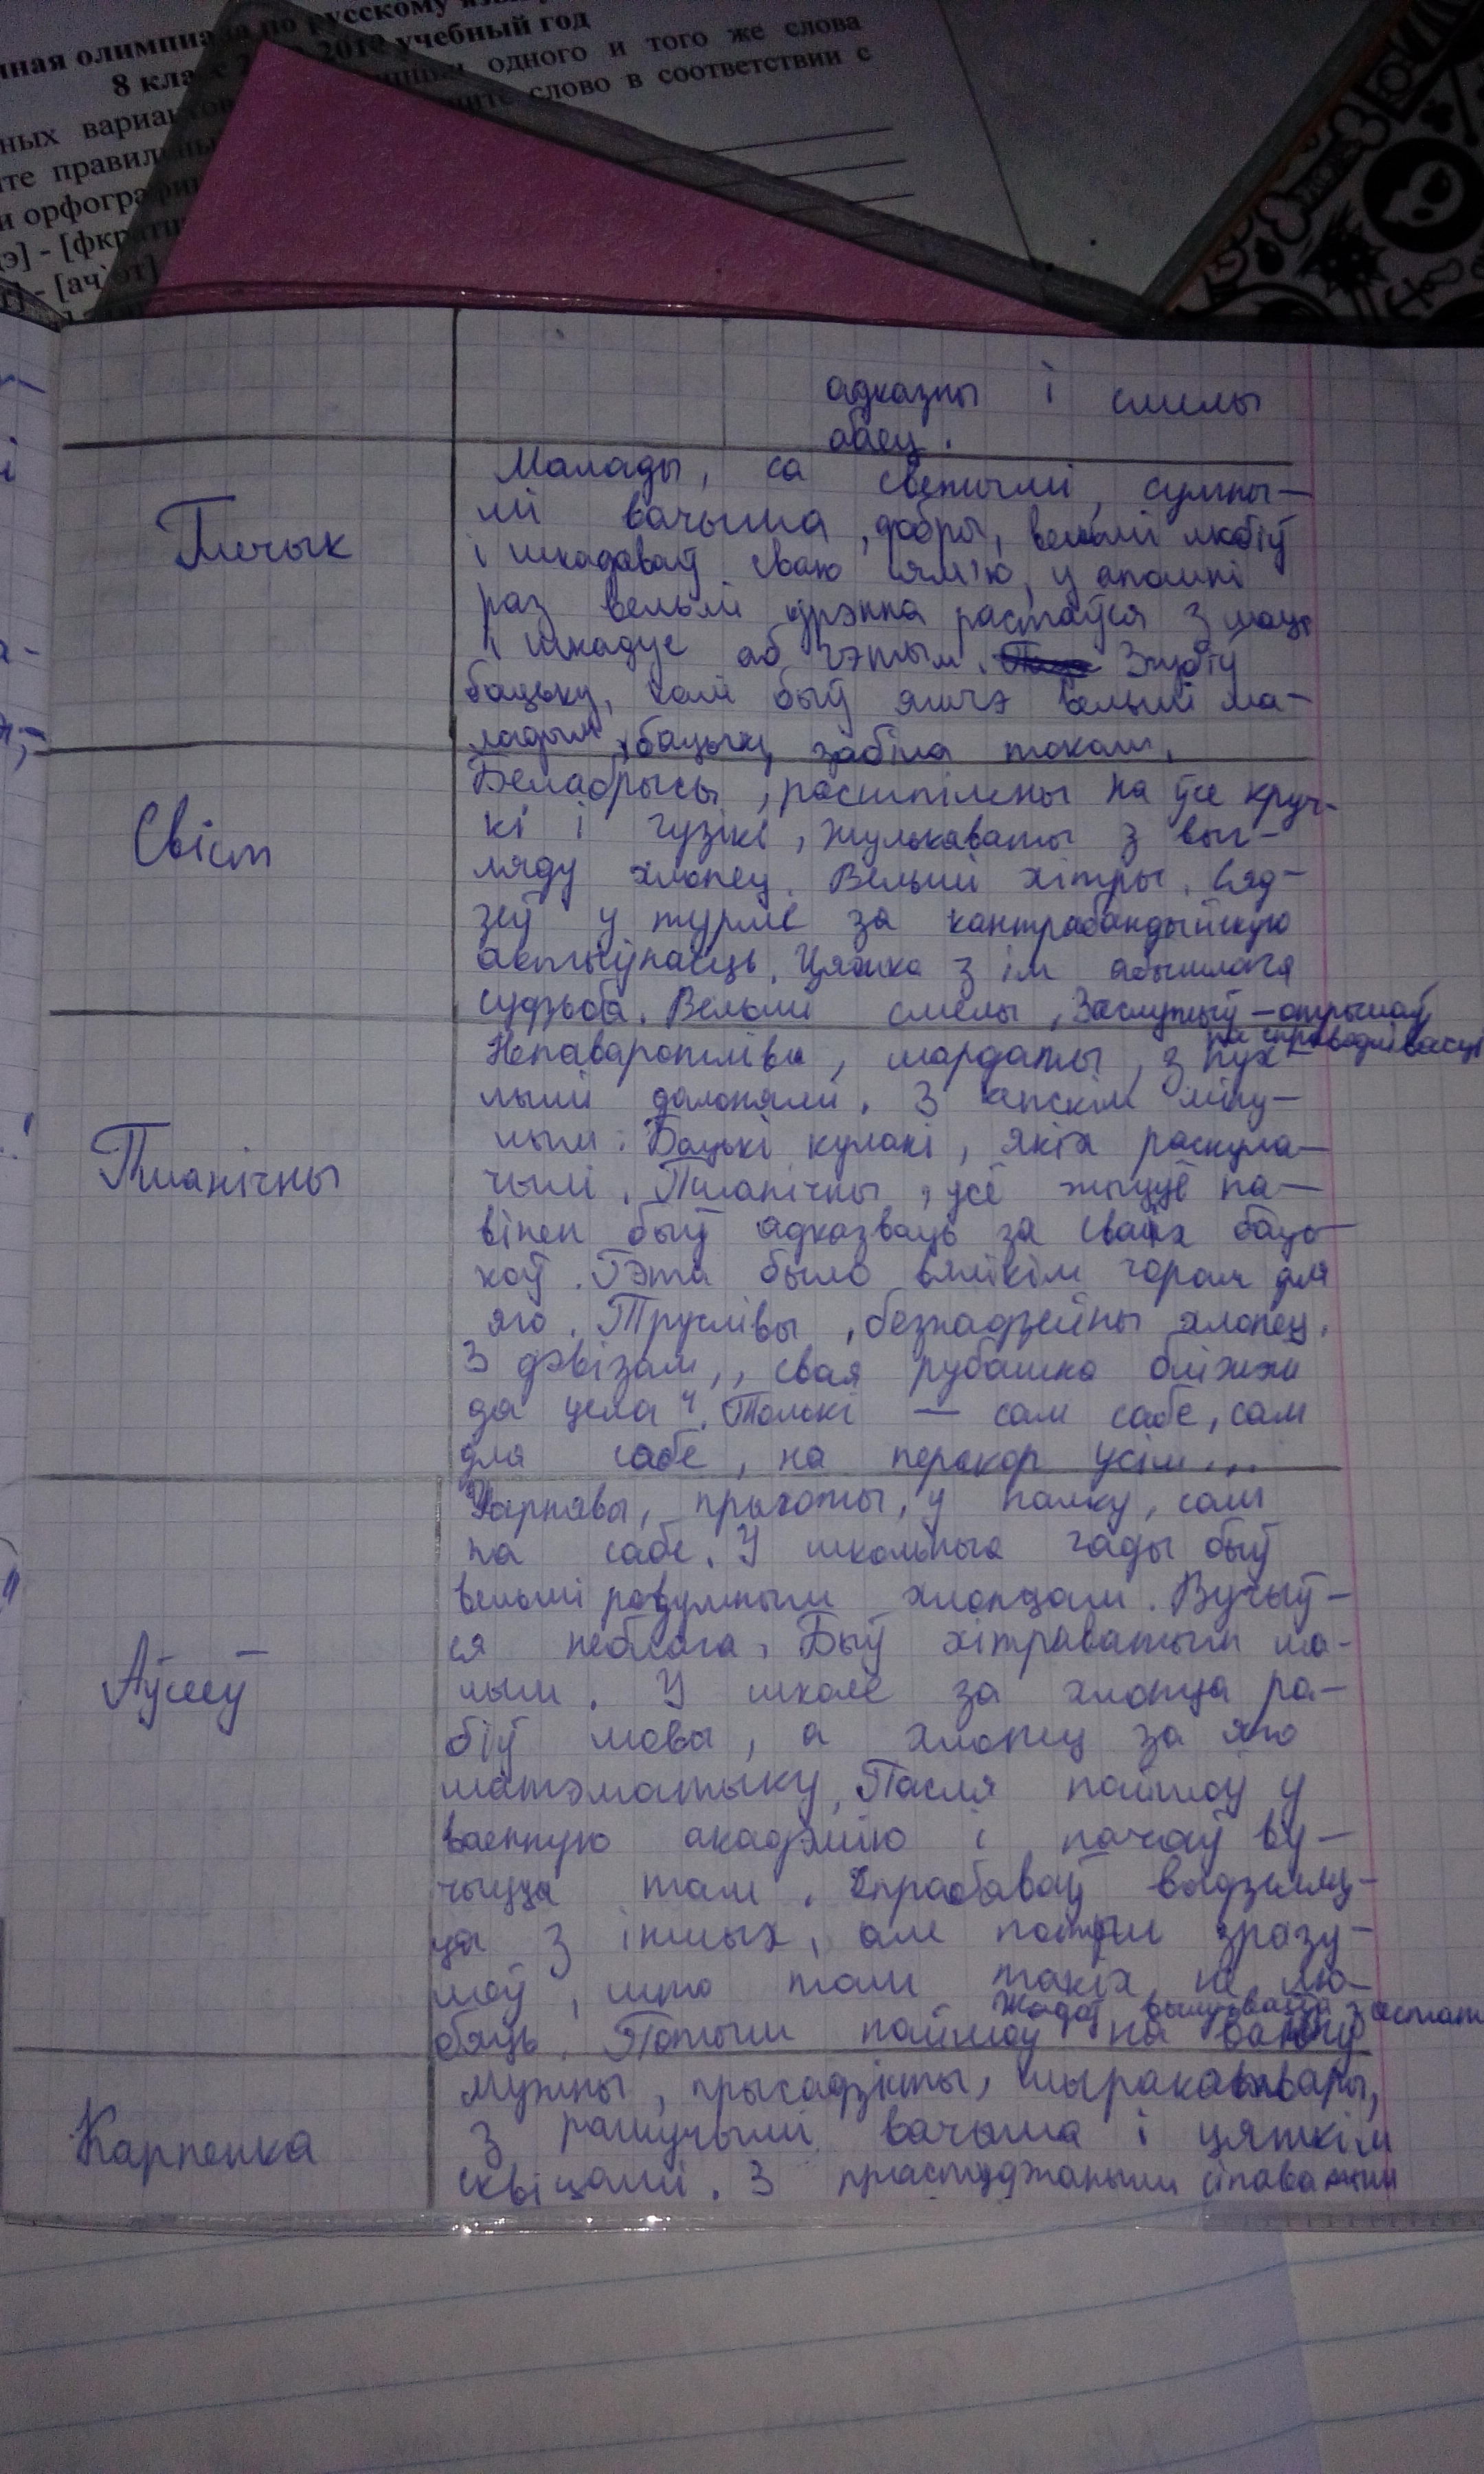 нная олимпиада по русскому языку
8 класс 2012 учебный год
одного и того же слова
ных слово в соответствии с
те
и
э] - [
] - [ач'от]
адказны і смелы
баец.
Глечык
Малады, са светлымі, сумны-
мі вачыма, добры, вельмі любіў
і шкадаваў сваю сям'ю, у апошні
раз вельмі дрэнна растаўся з маці
і шкадуе аб гэтым. Згубіў
бацьку, калі быў яшчэ вельмі ма-
ладым, бацьку забіла токам.
Свіст
Белабрысы, расшпілены на ўсе круч-
кі і гузікі, жулікаваты з выг-
ляду хлопец. Вельмі хітры. Сяд-
зеў у турме за кантрабандыйскую
актыўнасць. Цяжка з ім абышлася
судзьба. Вельмі смелы, Заслужыў - атрымаў
па справядлівасці
Пшанічны
Непаваротлівы, мардаты, з пух-
лымі далонямі. З
лым. Бацькі кулакі, якіх раскула-
чылі. Пшанічны, усё жыццё па-
вінен быў адказваць за сваіх баць-
коў. Гэта было вялікім горам для
яго. Труслівы, безнадзейны хлопец.
З дэвізам ,, свая рубашка бліжэй
да цела". Толькі — сам сабе, сам
для сабе, на перакор усім...
Аўсееў
Чарнявы, прыгожы, у палку, сам
па сабе. У школьныя гады быў
вельмі разумным хлопцам. Вучыў-
ся неблага. Быў хітраватым ма-
лым. У школе за хлопца ра-
біў мовы, а хлопец за яго
матэматыку. Пасля пайшоў у
ваенную акадэмію і пачаў ву-
чыцца там. Спрабаваў выдзяляц-
ца з іншых, але потым зразу-
меў, што там такіх не лю-
бяць. Потым пайшоў на вайну
Жадаў з астат
Карпенка
Мужны, прысадзісты, шыракатвары,
з рашучымі вачыма і цяжкімі
сквіцамі. З прастуджаным сіпаватым